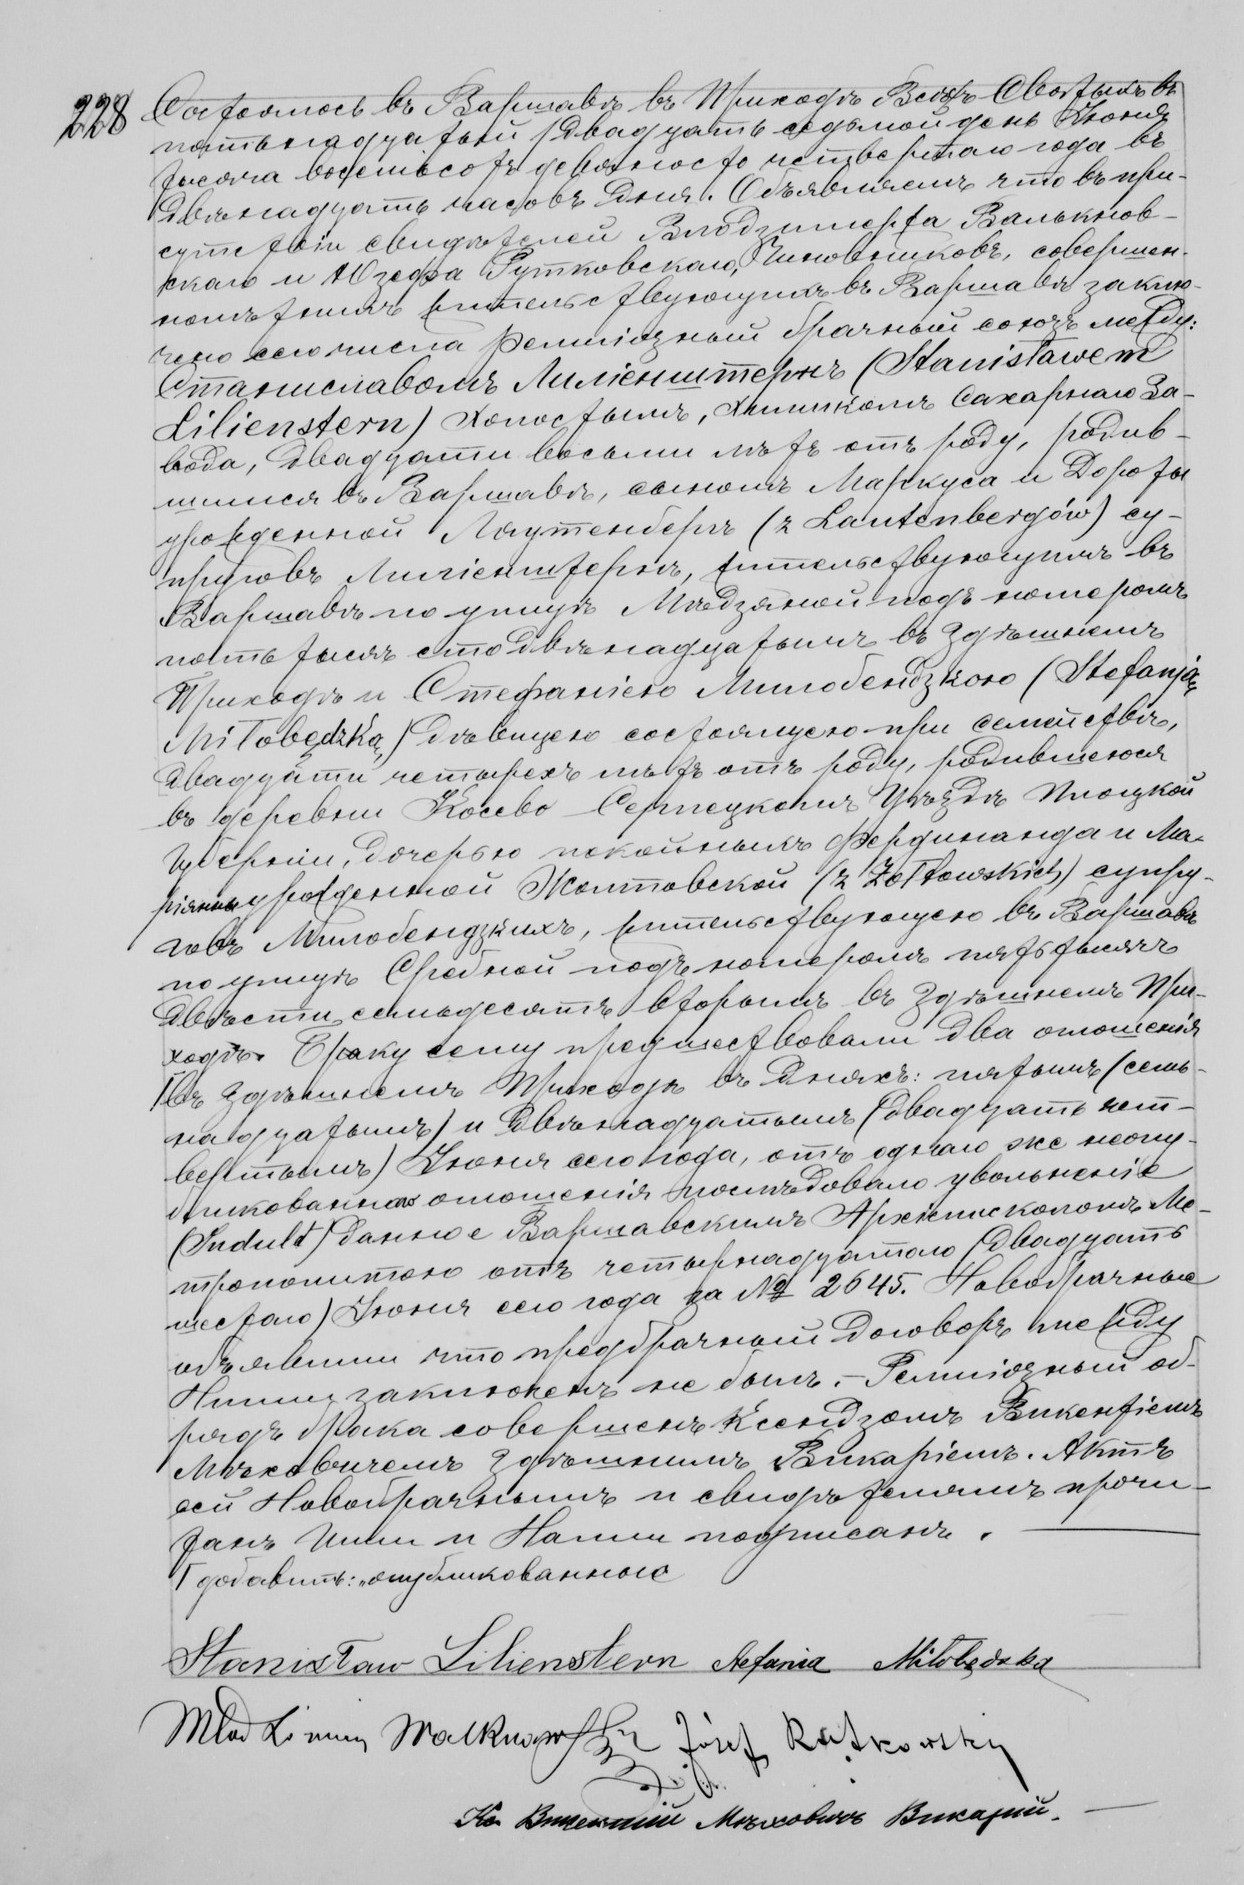 228
Состоялось въ Варшавѣ въ Приходѣ Всѣхъ Святыхъ въ
пятьнадцатый /двадцать седьмой день Іюня
тысяча восемьсотъ девяносто четвертаго года въ
двѣнадцать часовъ дня. Объявляемъ что въ при-
сутствіи свидѣтелей Влодзимержа Валькнов-
скаго и Юзефа Рутковскаго, Чиновниковъ, совершен-
нолѣтнихъ жительствующихъ въ Варшавѣ заклю-
чено сего числа религіозный брачный союзъ между:
Станиславомъ Лиліенштернъ (Stanisławem
Lilienstern) холостымъ, химикомъ Сахарнаго За-
вода, двадцати восьми лѣтъ отъ роду, родив-
шимся въ Варшавѣ, сыномъ Маркуса и Дороты
урожденной Лаутенбергъ (z Lautenbergów) су-
пруговъ Лиліенштернъ, жительствующимъ въ
Варшавѣ по улицѣ Мѣдзяной подъ номеромъ
пять тысячъ сто двѣнадцатымъ въ здѣшнемъ
Приходѣ и Стефаніею Милобендзкою (Stefanją
Miłobędzką) дѣвицею состоящею при семействѣ,
двадцати четырехъ лѣтъ отъ роду, родившеюся
въ деревни Косево Серпецкомъ Уѣздѣ Плоцкой
Губерніи, дочерью покойныхъ Фердинанда и Ма-
ріянны урожденной Жолтовской (z Żołtowskich) супру-
говъ Милобендзкихъ, жительствующею въ Варшавѣ
по улицѣ Сребной подъ номеромъ пять тысячъ
двѣсти семьдесятъ вторымъ въ здѣшнемъ При-
ходѣ. Браку сему предшествовали два оглашенія
Г въ здѣшнемъ Приходѣ въ дняхъ: пятымъ (семь-
надцатымъ) и двѣнадцатымъ (двадцать чет-
вертымъ) Іюня сего года, отъ одного же неопу-
бликованнаго оглашенія послѣдовало увольненіе
(Indult) данное Варшавскимъ Архіепископомъ Ме-
трополитою отъ четырнадцатаго (двадцать
шестаго) Іюня сего года за № 2645. Новобрачные
объявили что предбрачный договоръ между
Ними заключенъ не былъ.- Религіозный об-
рядъ брака совершенъ Ксендзомъ Викентіемъ
Мѣховичемъ здѣшнимъ Викаріемъ. Актъ
сей Новобрачнымъ и свидѣтелямъ прочи-
танъ Ими и Нами подписанъ.
Г добавить: „опубликованные
Stanisław Lilienstern Stefania Miłobędzka
Włodzimierz Walknowski Józef Rutkowski
Кс. Викентій Мѣховичъ Викарій.